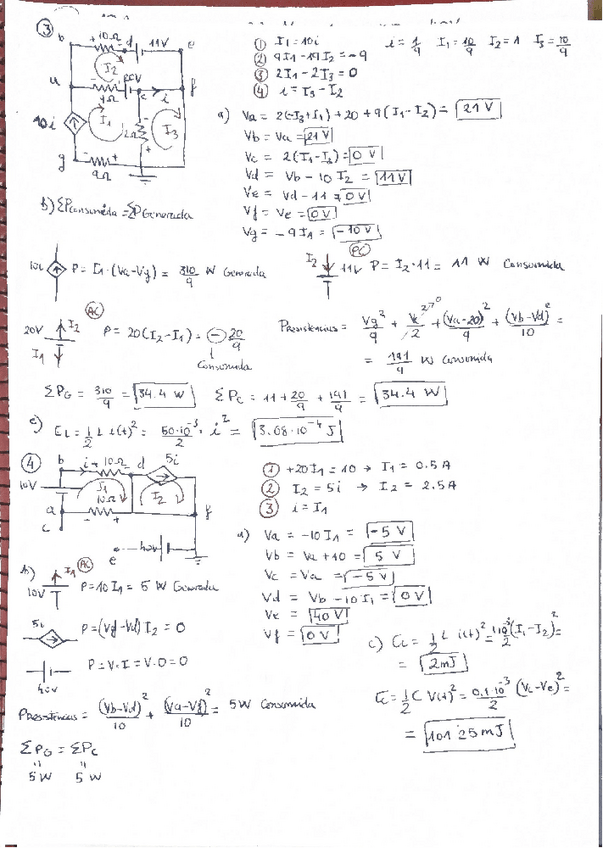 ③
b +10Ω- d 11V e
I2
a 4Ω 20V c i f
10i I1 2Ω I3
g 9Ω
① I1=10i i=1/9 I1=10/9 I2=1 I3=10/9
② 9I1-19I2=-9
③ 2I1-2I3=0
④ i=I3-I2
a) Va = 2(-I3+I1)+20+9(I1-I2)= 21V
Vb=Va=21V
Vc = 2(I1-I3)=0V
Vd = Vb-10I2=11V
Ve = Vd-11=0V
Vf = Ve=0V
Vg = -9I1=-10V
b) ΣPconsumida=ΣPGenerada
10i P=I1·(Va-Vg)= 310/9 W Generada
I2 11V (AC) P=I2·11= 11 W Consumida
20V I2 I1 (AC) P= 20(I2-I1)= -20/9
Consumida
Presistencias= Vg²/9 + Vc²/2 + (Va-20)²/9 + (Vb-Vd)²/10 =
= 191/9 W Consumida
ΣPG= 310/9 = 34.4 W ΣPC = 11+20/9+191/9 = 34.4 W
c) EL=1/2 L i(t)² = 50·10⁻³/2 · i² = 3.08·10⁻⁴J
④
b i +10Ω- d 5i
10V I1 10Ω I2
a f
c
e 40V
① +20I1=10 → I1=0.5A
② I2=5i → I2=2.5A
③ i=I1
a) Va = -10I1= -5V
Vb = Va+10= 5V
Vc = Va= -5V
Vd = Vb-10I1= 0V
Ve = 40V
Vf = 0V
b) 10V I1 (AC) P=10I1= 5W Generada
5i P=(Vf-Vd)I2=0
40V P=V·I=V·0=0
Presistencias= (Vb-Vd)²/10 + (Va-Vf)²/10 = 5W Consumida
ΣPG = ΣPC
5W 5W
c) EL= 1/2 L i(t)²=1·10⁻³/2 (I1-I2)²=
= 2mJ
EC=1/2 C V(t)²=0.1·10⁻³/2 (Vc-Ve)²=
= 101'25mJ